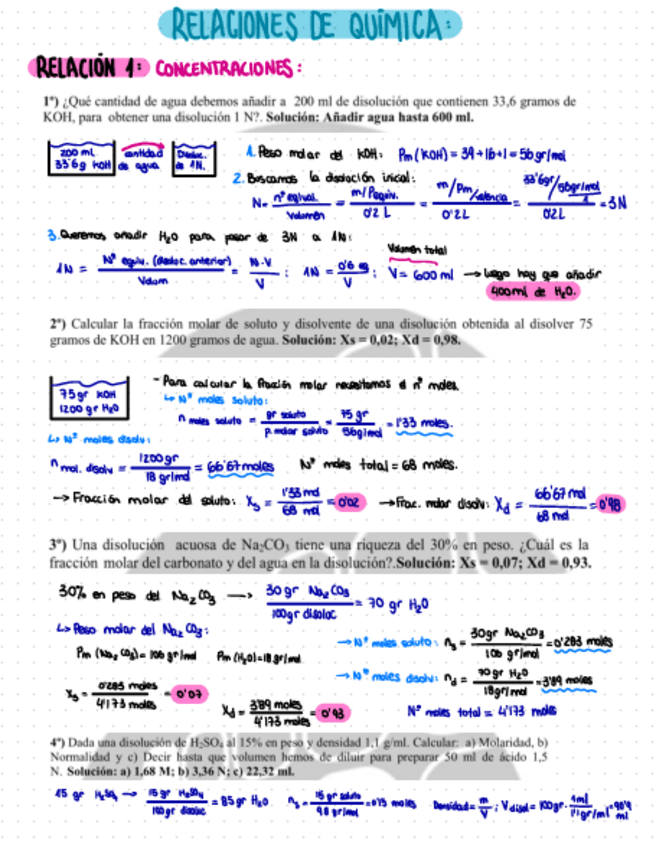 RELACIONES DE QUÍMICA:
RELACIÓN 1: CONCENTRACIONES:
1º) ¿Qué cantidad de agua debemos añadir a 200 ml de disolución que contienen 33,6 gramos de
KOH, para obtener una disolución 1 N?. Solución: Añadir agua hasta 600 ml.
200 mL
33'6g KOH
cantidad
de agua
Disoluc.
de 1N.
1. Peso molar del KOH: Pm (KOH) = 39+16+1 = 56 gr/mol
2. Buscamos la disolución inicial:
N = nº equival. / Volumen = m/Pequiv. / 0'2 L = m/Pm/valencia / 0'2L = 33'6gr/56gr/mol/1 / 0'2L = 3N
3. Queremos añadir H2O para pasar de 3N a 1N:
1N = Nº equiv. (disoluc. anterior) / Volum = N·V / V ; 1N = 0'6 eq / V ; V = 600 ml → luego hay que añadir
Volumen total
400ml de H2O.
2º) Calcular la fracción molar de soluto y disolvente de una disolución obtenida al disolver 75
gramos de KOH en 1200 gramos de agua. Solución: Xs = 0,02; Xd = 0,98.
75gr KOH
1200 gr H2O
- Para calcular la fracción molar necesitamos el nº moles.
↳ Nº moles soluto:
n moles soluto = gr soluto / p. molar soluto = 75 gr / 56g/mol = 1'33 moles.
↳ Nº moles disolv:
n mol. disolv = 1200gr / 18 gr/mol = 66'67moles Nº moles total = 68 moles.
→ Fracción molar del soluto: Xs = 1'33 mol / 68 mol = 0'02 → Frac. molar disolv: Xd = 66'67 mol / 68 mol = 0'98
3º) Una disolución acuosa de Na2CO3 tiene una riqueza del 30% en peso. ¿Cuál es la
fracción molar del carbonato y del agua en la disolución?.Solución: Xs = 0,07; Xd = 0,93.
30% en peso del Na2CO3 → 30 gr Na2CO3 / 100gr disoluc = 70 gr H2O
↳ Peso molar del Na2CO3:
Pm (Na2CO3) = 106 gr/mol Pm (H2O) = 18 gr/mol
→ Nº moles soluto: ns = 30gr Na2CO3 / 106 gr/mol = 0'283 moles
→ Nº moles disolv: nd = 70 gr H2O / 18gr/mol = 3'89 moles
Xs = 0'283 moles / 4'173 moles = 0'07
Xd = 3'89 moles / 4'173 moles = 0'93
Nº moles total = 4'173 moles
4º) Dada una disolución de H2SO4 al 15% en peso y densidad 1,1 g/ml. Calcular: a) Molaridad, b)
Normalidad y c) Decir hasta que volumen hemos de diluir para preparar 50 ml de ácido 1,5
N. Solución: a) 1,68 M; b) 3,36 N; c) 22,32 ml.
15 gr H2SO4 → 15 gr H2SO4 / 100gr disoluc = 85 gr H2O ns = 15 gr soluto / 98 gr/mol = 0'15 moles Densidad = m / V ; V disol = 100gr · 1ml / 1'1gr/ml = 90'9 ml